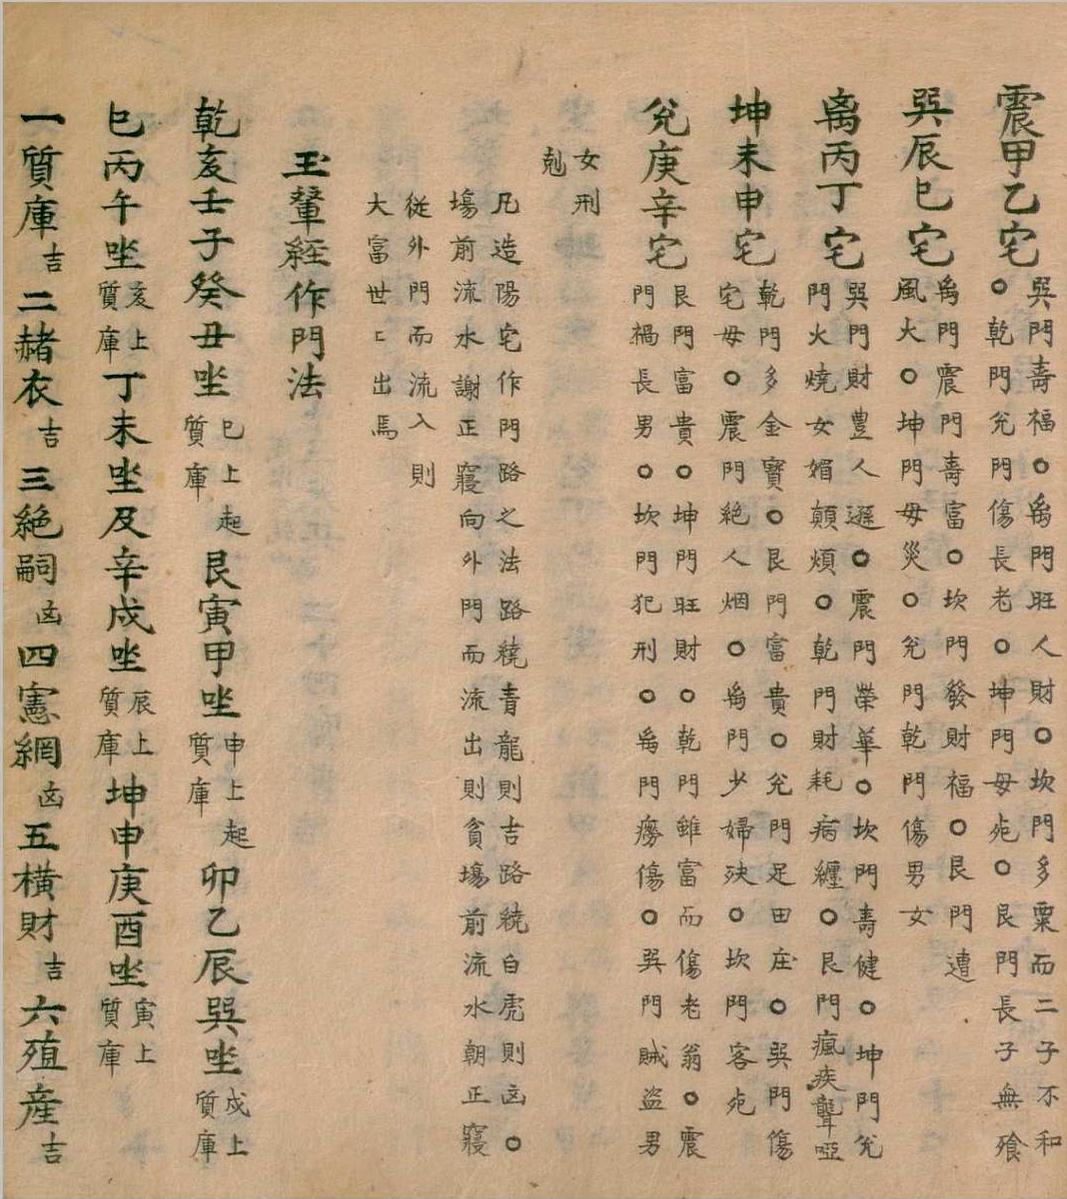 震甲乙宅 巽門壽福○离門旺人財○坎門多粟而二子不和
○乾門兊門傷長老○坤門母死○艮門長子無飱
巽辰巳宅 离門震門壽富○坎門發財福○艮門遭
風火○坤門母災○兊門乾門傷男女
离丙丁宅 巽門財豊人遜○震門榮華○坎門壽健○坤門兊
門火燒女媚顛煩○乾門財耗病纏○艮門瘋疾聾啞
坤未申宅 乾門多金寶○艮門富貴○兊門足田庄○巽門傷
宅母○震門絕人烟○离門少婦殃○坎門客死
兊庚辛宅 艮門富貴○坤門旺財○乾門雖富而傷老翁○震
門禍長男○坎門犯刑○离門癆傷○巽門賊盗男
女刑
剋
凡造陽宅作門路之法路繞青龍則吉路繞白虎則凶○
塲前流水謝正寢向外門而流出則貧塲前流水朝正寢
從外門而流入則
大富世〻出馬
玉輦経作門法
乾亥壬子癸丑坐 巳上起質庫 艮寅甲坐 申上起質庫 卯乙辰巽坐 戌上質庫
巳丙午坐 亥上質庫 丁未坐及辛戌坐 辰上質庫 坤申庚酉坐 寅上質庫
一質庫吉二赭衣吉三絕嗣凶四憲網凶五橫財吉六殖産吉